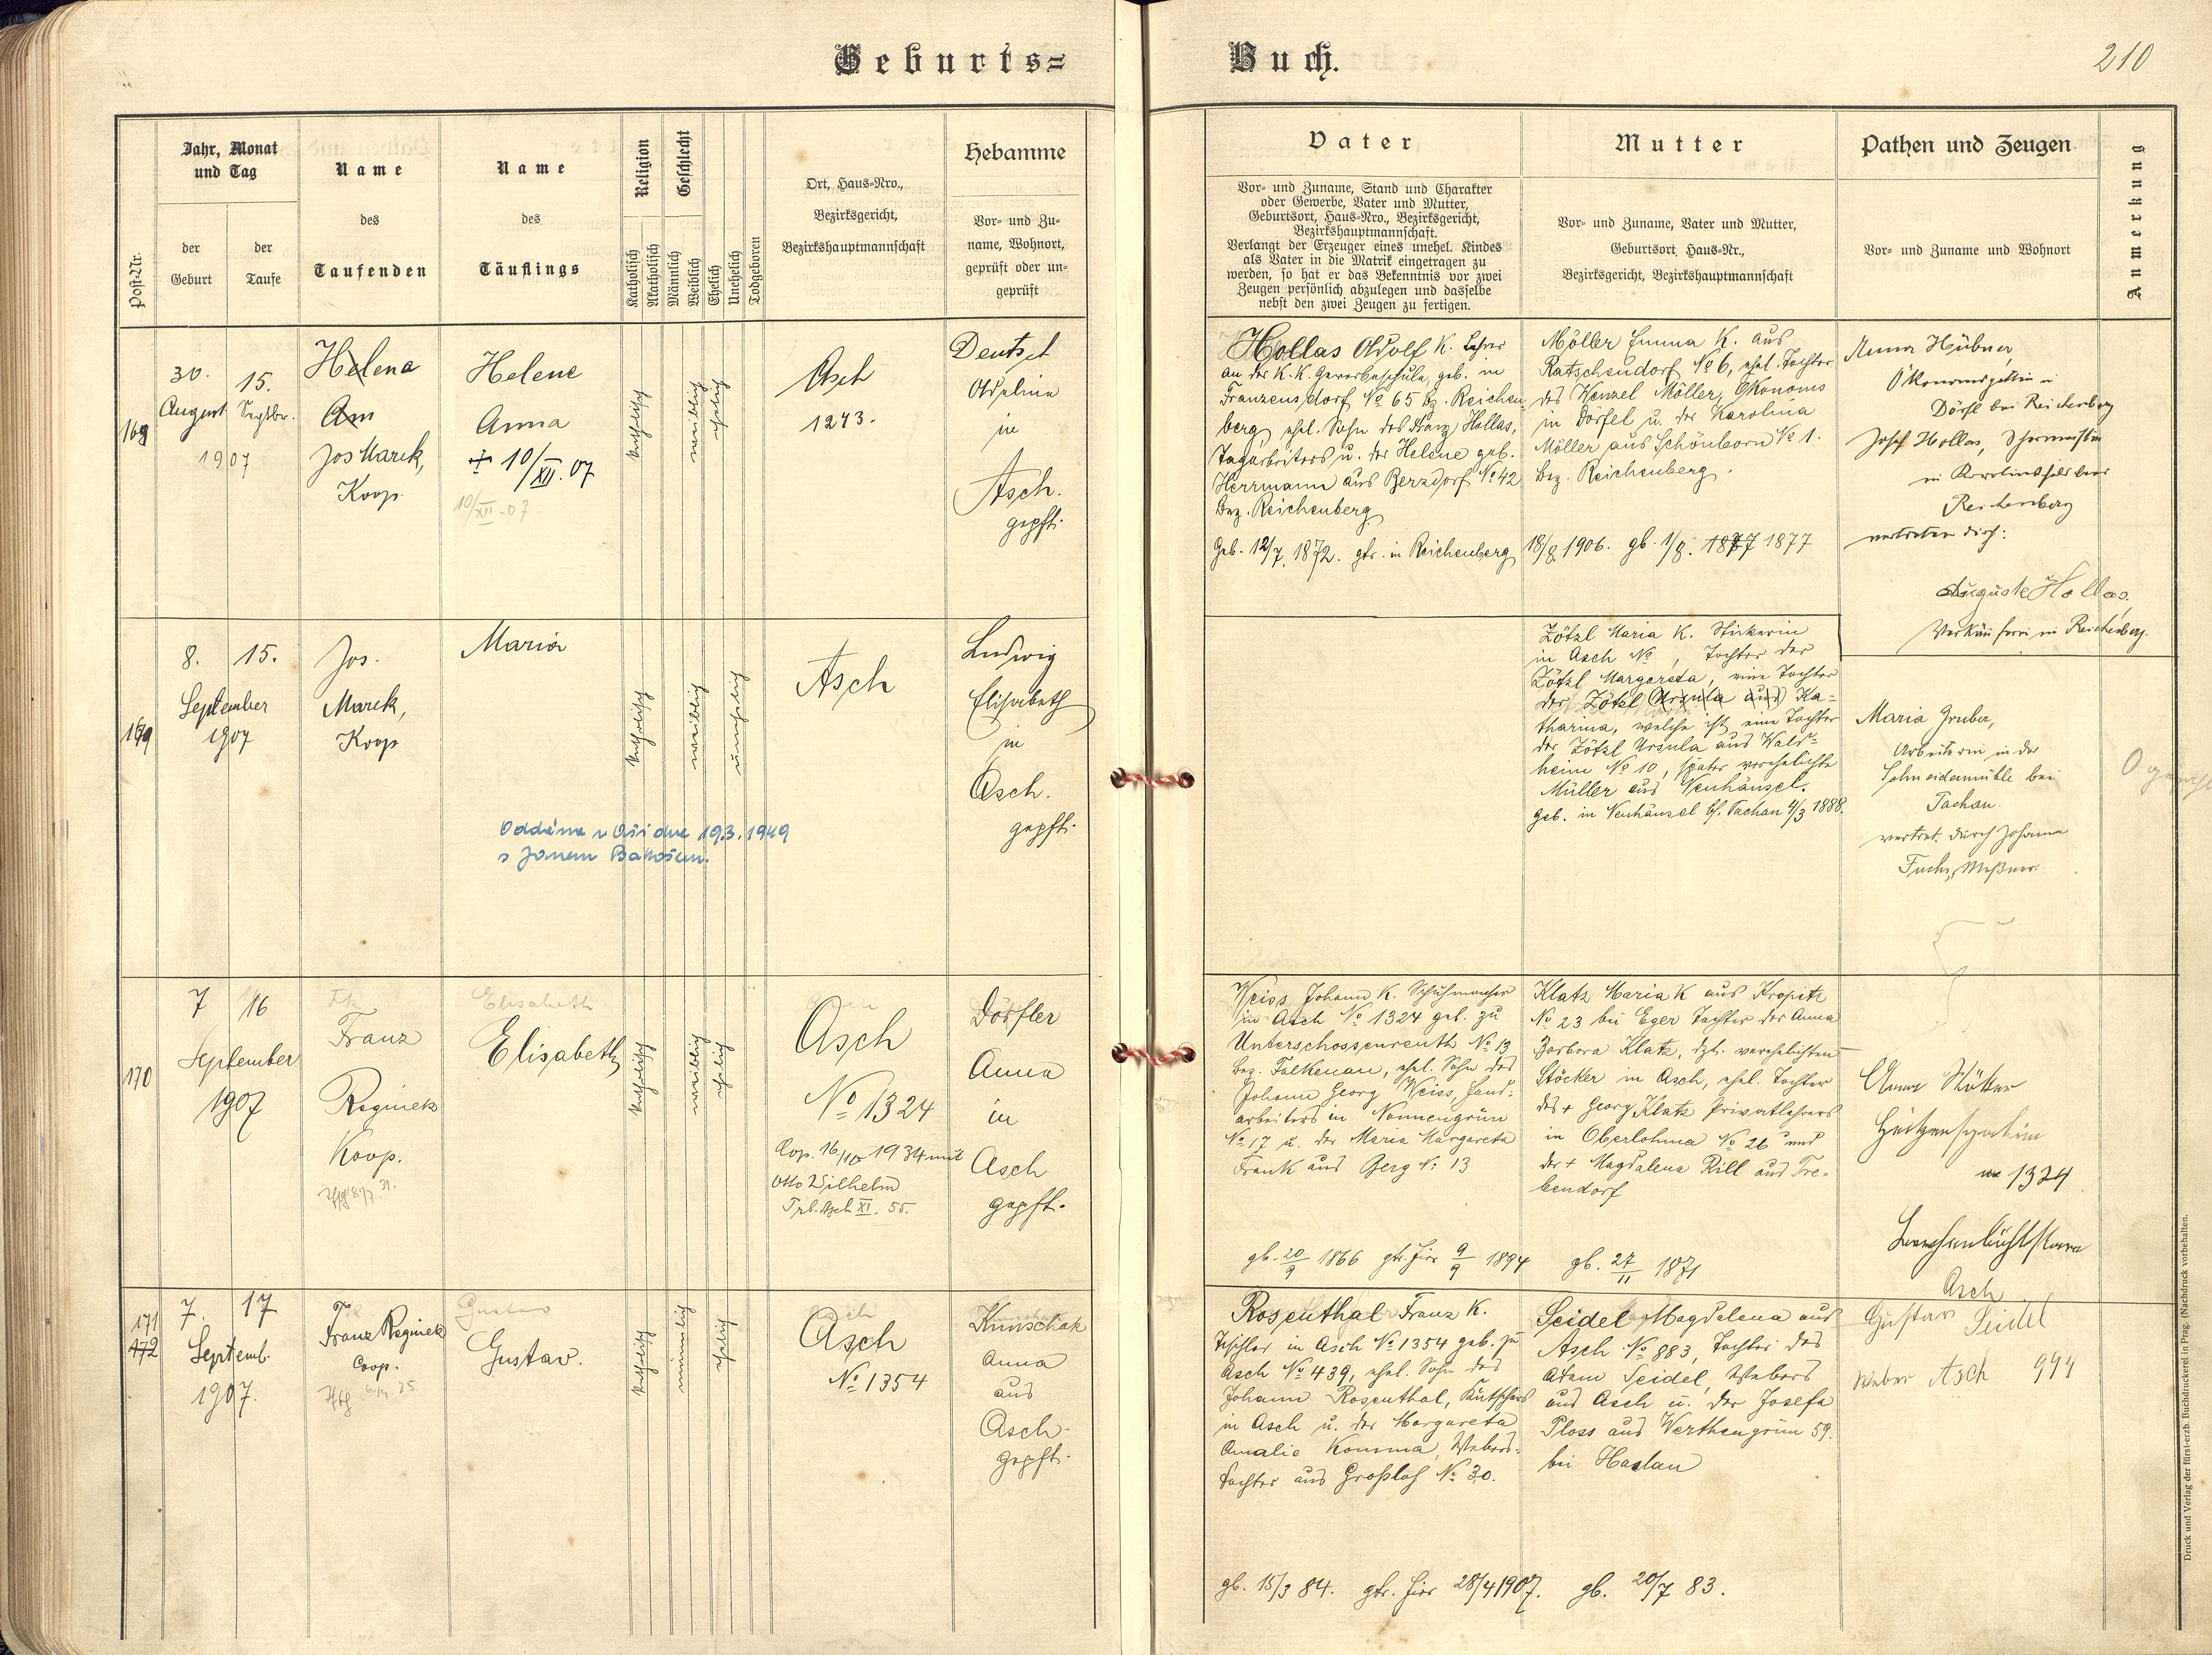 Geburts=
Buch.
210
Post-Nr.
Jahr, Monat
und Tag
der
Geburt
der
Taufe
Name
des
Taufenden
Name
des
Täuflings
Religion
Katholisch
Akatholisch
Geschlecht
Männlich
Weiblich
Ehelich
Unehelich
Todgeboren
Ort, Haus-Nro.,
Bezirksgericht,
Bezirkshauptmannschaft
Hebamme
Vor- und Zu-
name, Wohnort,
geprüft oder un-
geprüft
Vater
Vor- und Zuname, Stand und Charakter
oder Gewerbe, Vater und Mutter,
Geburtsort, Haus-Nro., Bezirksgericht,
Bezirkshauptmannschaft.
Verlangt der Erzeuger eines unehel. Kindes
als Vater in die Matrik eingetragen zu
werden, so hat er das Bekenntnis vor zwei
Zeugen persönlich abzulegen und dasselbe
nebst den zwei Zeugen zu fertigen.
Mutter
Vor- und Zuname, Vater und Mutter,
Geburtsort, Haus-Nr.,
Bezirksgericht, Bezirkshauptmannschaft
Pathen und Zeugen
Vor- und Zuname und Wohnort
Anmerkung
168
30.
August
15.
Septbr.
1907
Helena
Am
Jos Marek,
Koop.
Helene
Anna
+ 10/XII. 07
10/XII. 07
katholisch
weiblich
ehelich
Asch
1243.
Deutsch
in
Asch.
gepft.
Hollas Adolf K. Lehrer
an der K.K. Gewerbeschule, geb. in
Franzensdorf No 65 Bz. Reichen-
berg, ehel. Sohn des Franz Hollas,
Tagarbeiters u. der Helene geb.
Herrmann aus Berzdorf No 42
Bez. Reichenberg
Geb. 12/7. 1872. gtr. in Reichenberg
Möller Emma K. aus
Ratschendorf No 6, ehel. Tochter
des Wenzel Möller, Ökonoms
in Dörfel u. der Karolina
Möller aus Schönborn No 1.
Bez. Reichenberg.
18/8. 1906. gb. 1/8. 1877 1877
Anna Hübner,
Ökonomsgattin in
Dörfl bei Reichenberg
Josef Hollas,
in Karolinsfeld bei
Reichenberg
vertreten durch:
Auguste Hollas,
Verkäuferin in Reichenberg.
169
8.
15.
September
1907
Jos.
Marek,
Koop
Maria
katholisch
weiblich
unehelich
Asch
Ludwig
Elisabeth
in
Asch.
gepft.
Oddána v Aši dne 19.3.1949
s Janem Bakošem.
Zötzl Maria K. Stickerin
in Asch No , Tochter der
Zötzl Margareta, eine Tochter
der Zötzl Ursula aus Ka-
tharina, welche ist eine Tochter
der Zötzl Ursula aus Wald-
heim No 10, später verehelichte
Müller aus Neuhäusel.
Geb. in Neuhäusel bh. Tachau 4/3 1888.
Maria Gruber,
Arbeiterin in der
Schneidermühle bei
Tachau.
vertret. durch Johann
Fuchs, Meßner.
170
7
16
September
1907
Franz
Reginek
Koop.
Elisabeth
Elisabeth
katholisch
weiblich
ehelich
Asch
No 1324
Cop. 16/10 1934 mit
Otto Wilhelm
Trb. Asch XI. 55.
Dörfler
Anna
in
Asch
gepft.
Weiss Johann K. Schuhmacher
in Asch No 1324 geb. zu
Unterschossenreuth No 13
Bez. Falkenau, ehel. Sohn des
Johann Georg Weiss, Hand-
arbeiters in Nonnengrün
No 17 u. der Maria Margareta
Frank aus Berg No 13
gb. 20/9 1866 gtr. hier 9/9 1894
Klatz Maria K aus Kropitz
No 23 bei Eger Tochter der Anna
Barbara Klatz, dzt. verehelichten
Stöcker in Asch, ehel. Tochter
des + Georg Klatz Privatlehrers
in Oberlohma No 26 und
der + Magdalena Rill aus Tre-
bendorf
gb. 27/11 1871
1324
Asch
171
172
7.
17
Septemb.
1907.
Franz Reginek
Coop.
Gustav
Gustav.
katholisch
männlich
ehelich
Asch
No 1354
Kunschak
Anna
aus
Asch.
gepft.
Rosenthal Franz K.
Tischler in Asch No 1354 geb. zu
Asch No 439, ehel. Sohn des
Johann Rosenthal, Kutschers
in Asch u. der Margareta
Amalie Komma, Webers-
tochter aus Großloh No 30.
gb. 15/3 84. gtr. hier 28/4 1907.
Seidel Magdalena aus
Asch No 883, Tochter des
Adam Seidel, Webers
aus Asch u. der Josefa
Ploss aus Werthengrün 59.
bei Haslau
gb. 20/7 83.
Gustav Seidel
Weber Asch 994
Druck und Verlag der fürst-erzb. Buchdruckerei in Prag. (Nachdruck vorbehalten.